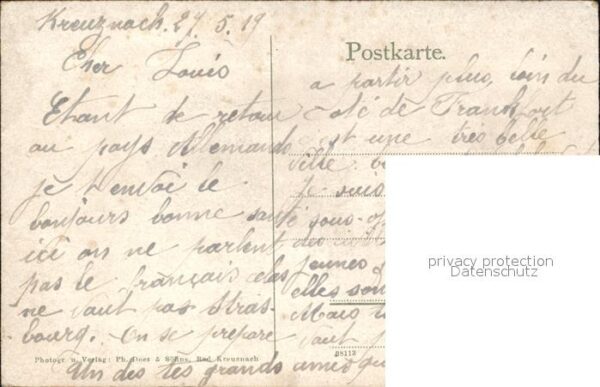 Kreuznach. 27. 5. 19
Postkarte.
Cher Louis
Etant de retour
au pays Allemands
je t'envoi le
bonjours bonne santé
ici on ne parlent
pas le français cela
ne vaut pas Stras-
bourg. On se prepare
a partir plus loin du
coté de Francfort
est une tres belle
ville.
je suis
sous-of
des
jeunes
elles son
Mais
vaut
Un des tes grands amis qu
privacy protection
Datenschutz
Photogr. u. Verlag: Ph. Dees & Söhne, Bad Kreuznach